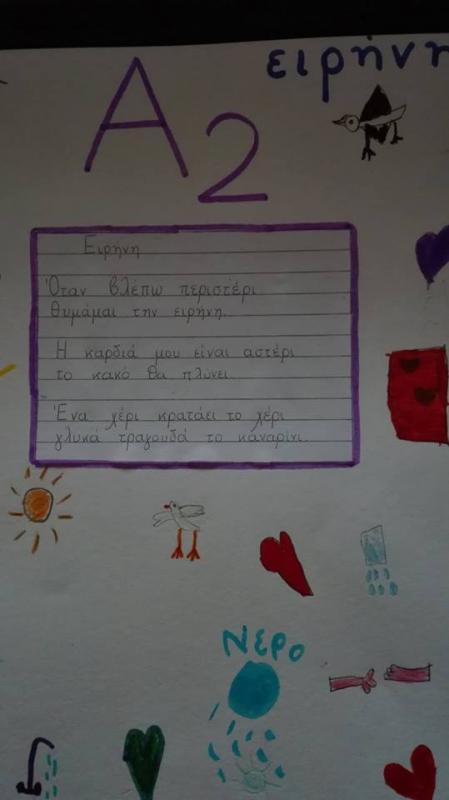 ειρήνη
A2
Ειρήνη
Όταν βλέπω περιστέρι
θυμάμαι την ειρήνη.
Η καρδιά μου είναι αστέρι
το κακό θα πλύνει.
Ένα χέρι κρατάει το χέρι
γλυκά τραγουδά το καναρίνι.
Νερο